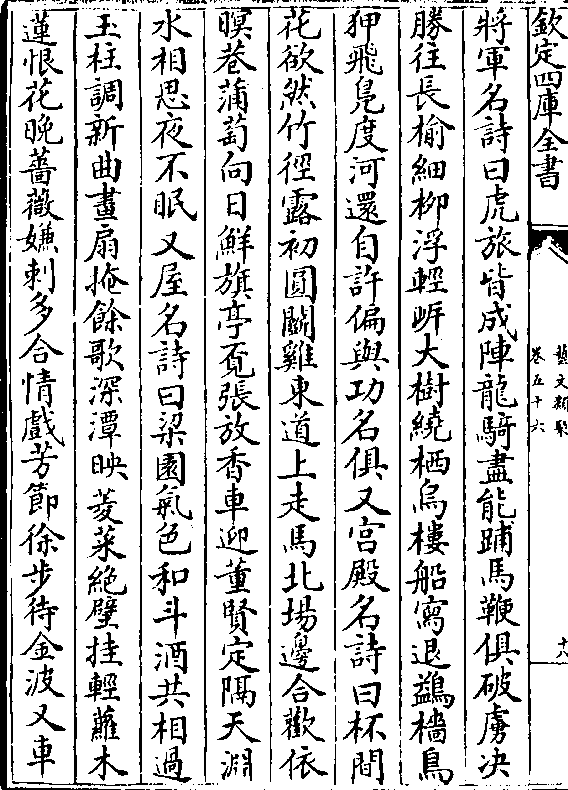 欽定四庫全書
藝文類聚
卷五十六
十八
將軍名詩曰虎旅皆成陣龍騎盡能踊馬鞭俱破虜決
勝往長榆細柳浮輕岍大樹繞栖烏樓船寫退鷁檣烏
狎飛鳧度河還自許偏與功名俱又宫殿名詩曰杯間
花欲然竹徑露初圓鬬雞東道上走馬北場邊合歡依
暝巷蒲萄向日鮮旗亭覔張放香車迎董賢定隔天淵
水相思夜不眠又屋名詩曰梁園氣色和斗酒共相過
玉柱調新曲畫扇掩餘歌深潭映菱菜絶壁挂輕蘿木
蓮恨花晚薔薇嫌刺多合情戲芳節徐步待金波又車